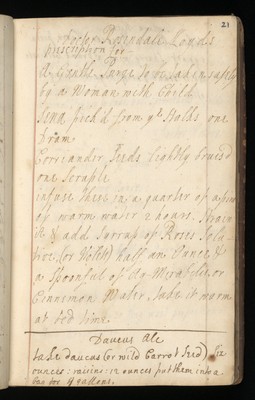 21
Docter Rosendale Londs
prescription for
A Gentle Purge to be taken safely
by a Woman with Child
Sena pick'd from yᵉ Stalks one
Dram
Corriander Seeds lightly bruis'd
one Scruple
infuse these in a quarter of a pint
of warm water 2 hours. Strain
it & add Syrrup of Roses Solu-
tive (or Violets) half an Ounce &
a Spoonful of Aq. Mirabilis or
Cinnimon Water. take it warm
at bed time.
Daucus Ale
take daucus (or wild Carrot Seed) Six
ounces: raisins: 12 ounces put them into a
bag for 4 gallons.